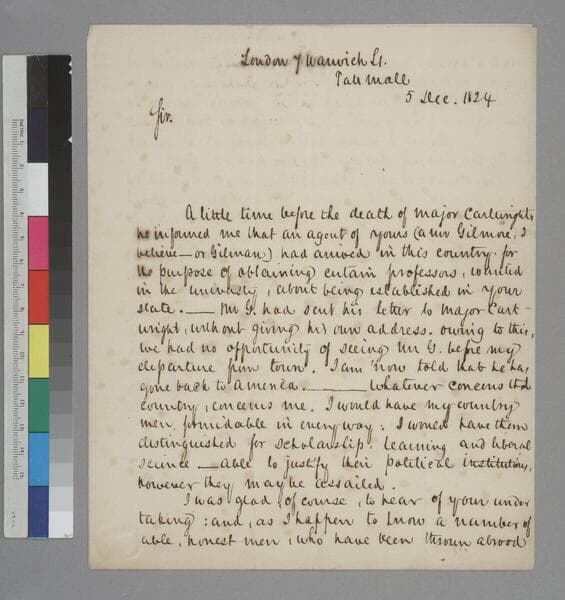 London 7 Warwick St.
Pall Mall
5 Dec. 1824
Sir.
A little time before the death of Major Cartwright,
he informed me that an agent of yours (a Mr Gilmore, I
believe — or Gilman) had arrived in this country for
the purpose of obtaining certain professors, wanted
in the university, about being established in your
state. — Mr G. had sent his letter to Major Cart-
wright, without giving his own address. owing to this,
we had no opportunity of seeing Mr G. before my
departure from town. I am now told that he has
gone back to America. — Whatever concerns that
country, concerns me. I would have my country
men, formidable in every way: I would have them
distinguished for scholarship: learning and liberal
science — able to justify their political institutions,
however they may be assailed.
I was glad, of course, to hear of your under
taking: and, as I happen to know a number of
able, honest men, who have been thrown abroad